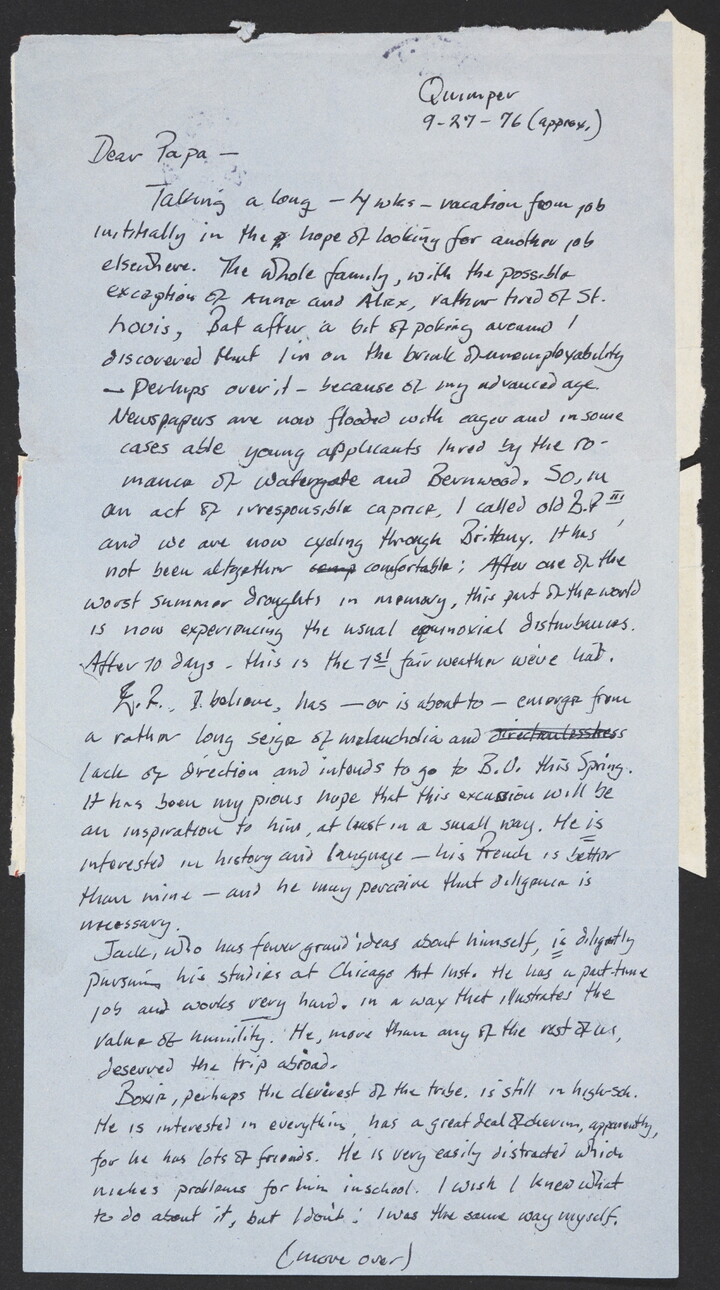 Quimper
9-27-76 (approx.)
Dear Papa —
Taking a long — 4 wks — vacation from job
inititially in the hope of looking for another job
elsewhere. The whole family, with the possible
exception of Anne and Alex, rather tired of St.
Louis, But after a bit of poking around I
discovered that I'm on the brink of unemployability
— Perhaps over it — because of my advanced age.
Newspapers are now flooded with eager and in some
cases able young applicants lured by the ro-
mance of Watergate and Bernwood. So, in
an act of irresponsible caprice, I called old B.P III,
and we are now cycling through Brittany. It has
not been altogether comfortable: After one of the
worst summer droughts in memory, this part of the world
is now experiencing the usual equinoxial disturbances.
After 10 days - this is the 1st fair weather we've had.
I believe, has — or is about to — emerge from
a rather long seige of melancholia and directionlessness
lack of direction and intends to go to B.U. this Spring.
It has been my pious hope that this excursion will be
an inspiration to him, at least in a small way. He is
interested in history and language — his French is better
than mine — and he may perceive that diligence is
necessary.
Jack, who has fewer grand ideas about himself, is diligtly
pursuing his studies at Chicago Art Inst. He has a part-time
job and works very hard. in a way that illustrates the
value of humility. He, more than any of the rest of us,
deserved the trip abroad.
Boxie, perhaps the cleverest of the tribe. is still in high-sch.
He is interested in everything, has a great deal of charm, apparently,
for he has lots of friends. He is very easily distracted which
makes problems for him in school. I wish I knew what
to do about it, but I don't: I was the same way myself.
(move over)